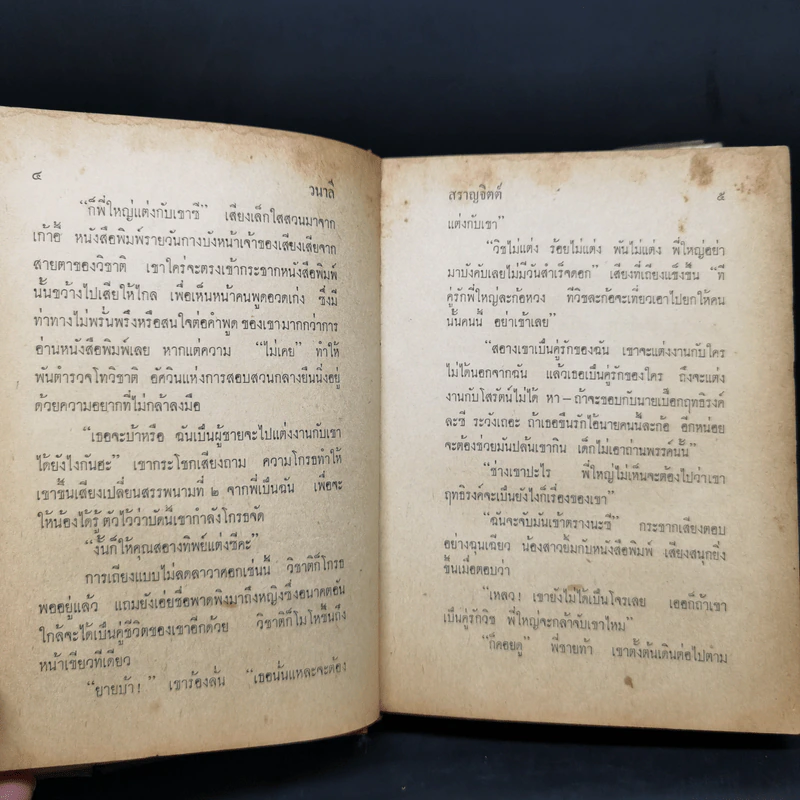 ๔
วนาลี
"ก็พี่ใหญ่แต่งกับเขาซี" เสียงเล็กใสสวนมาจาก
เก้าอี้ หนังสือพิมพ์รายวันกางบังหน้าเจ้าของเสียงเสียจาก
สายตาของวิชาติ เขาใคร่จะตรงเข้ากระชากหนังสือพิมพ์
นั้นขว้างไปเสียให้ไกล เพื่อเห็นหน้าคนพูดอวดเก่ง ซึ่งมี
ท่าทางไม่พรั่นพรึงหรือสนใจต่อคำพูด ของเขามากกว่าการ
อ่านหนังสือพิมพ์เลย หากแต่ความ "ไม่เคย" ทำให้
พันตำรวจโทวิชาติ อัศวินแห่งการสอบสวนกลางยืนนิ่งอยู่
ด้วยความอยากที่ไม่กล้าลงมือ
"เธอจะบ้าหรือ ฉันเป็นผู้ชายจะไปแต่งงานกับเขา
ได้ยังไงกันฮะ" เขากระโชกเสียงถาม ความโกรธทำให้
เขาขึ้นเสียงเปลี่ยนสรรพนามที่ ๒ จากพี่เป็นฉัน เพื่อจะ
ให้น้องได้รู้ ตัวไว้ว่าบัดนี้เขากำลังโกรธจัด
"งั้นก็ให้คุณสอางทิพย์แต่งซีคะ"
การเถียงแบบไม่ลดลาวาศอกเช่นนี้ วิชาติก็โกรธ
พออยู่แล้ว แถมยังเอ่ยชื่อพาดพิงมาถึงหญิงซึ่งอนาคตอัน
ใกล้จะได้เป็นคู่ชีวิตของเขาอีกด้วย วิชาติก็โมโหขึ้นถึง
หน้าเขียวทีเดียว
"ยายบ้า!" เขาร้องลั่น "เธอนั่นแหละจะต้อง
สราญจิตต์
๕
แต่งกับเขา"
"วิชไม่แต่ง ร้อยไม่แต่ง พันไม่แต่ง พี่ใหญ่อย่า
มาบังคับเลยไม่มีวันสำเร็จดอก" เสียงที่เถียงแข็งขึ้น "ที
คู่รักพี่ใหญ่ละก้อหวง ทีวิชละก้อจะเที่ยวเอาไปยกให้คน
นั้นคนนี้ อย่าเข้าเลย"
"สอางเขาเป็นคู่รักของฉัน เขาจะแต่งงานกับใคร
ไม่ได้นอกจากฉัน แล้วเธอเป็นคู่รักของใคร ถึงจะแต่ง
งานกับโสรัตน์ไม่ได้ หา—ถ้าจะชอบกับนายเบือกฤทธิรงค์
ละซี ระวังเถอะ ถ้าเธอขืนรักไอ้นายคนนี้ละก้อ อีกหน่อย
จะต้องช่วยมันปล้นเขากิน เด็กไม่เอาถ่านพรรค์นั้น"
"ช่างเขาปะไร พี่ใหญ่ไม่เห็นจะต้องไปว่าเขา
ฤทธิรงค์จะเป็นยังไงก็เรื่องของเขา"
"ฉันจะจับมันเข้าตรางนะซี" กระชากเสียงตอบ
อย่างฉุนเฉียว น้องสาวยิ้มกับหนังสือพิมพ์ เสียงสนุกยิ่ง
ขึ้นเมื่อตอบว่า
"เหลว! เขายังไม่ได้เป็นโจรเลย เธอก็ถ้าเขา
เป็นคู่รักวิช พี่ใหญ่จะกล้าจับเขาไหม"
"ก็คอยดู" พี่ชายท้า เขาตั้งต้นเดินต่อไปตาม